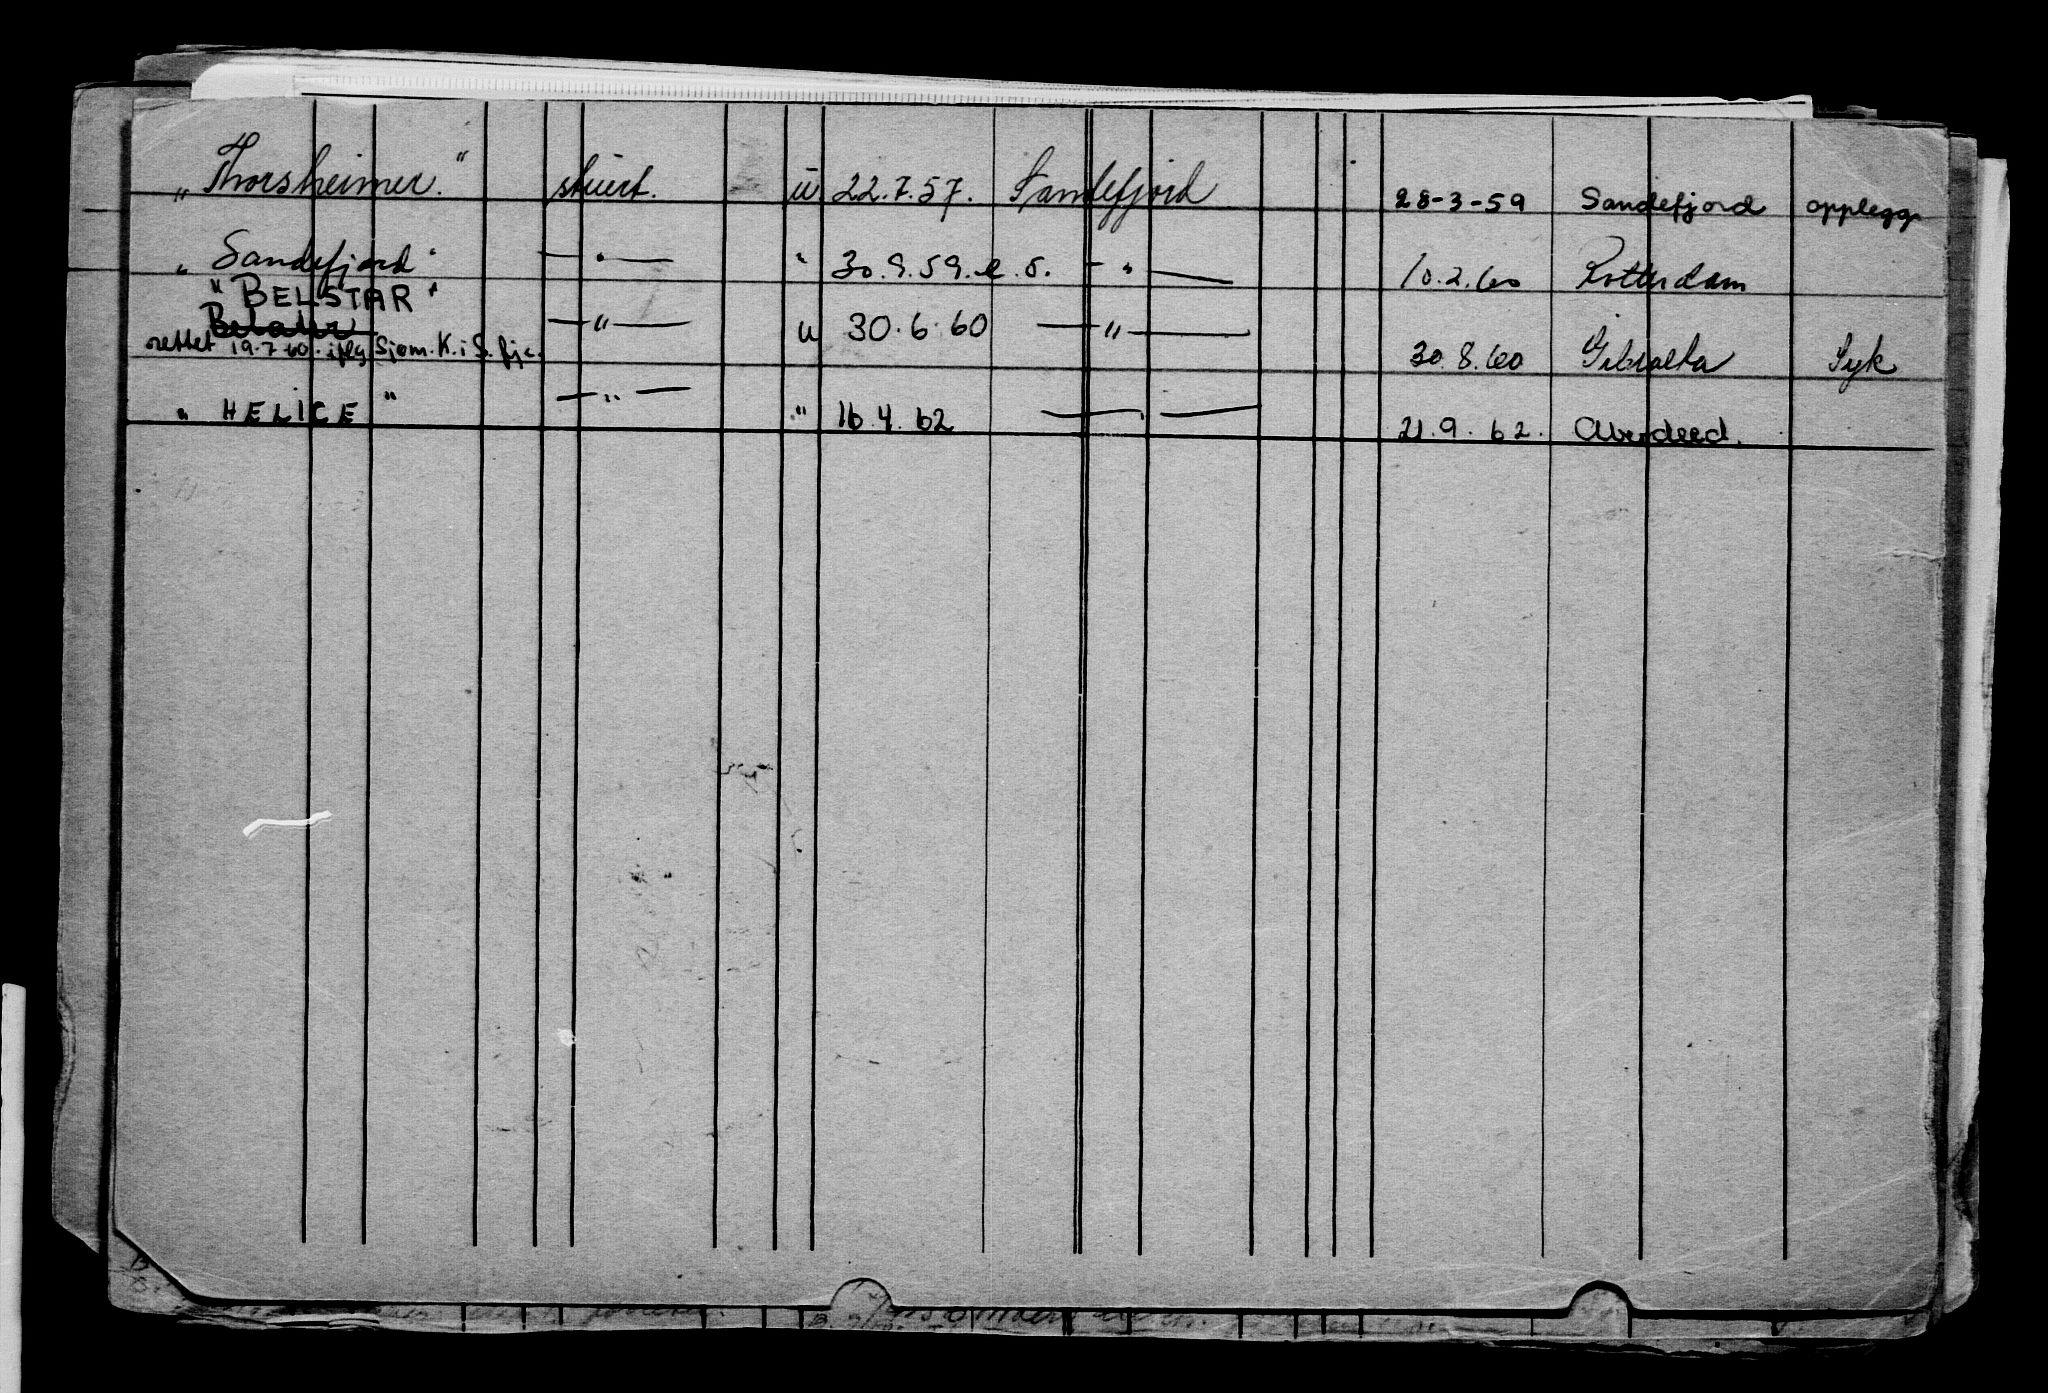 „ Thorsheimer. " stuert. u 22.7.57. Sandefjord 28-3-59 Sandefjord opplegg
„ Sandefjord " — " — " 30.9.59. — " — 10.2.60 Rotterdam
" BELSTAR "
rettet 19.7.60. iflg. Sjøm. K. i S. fj. — " — u 30.6.60 — " — 30.8.60 Gibralta Syk
„ HELICE " — " — " 16.4.62 — " — 21.9.62. Aberdeed.